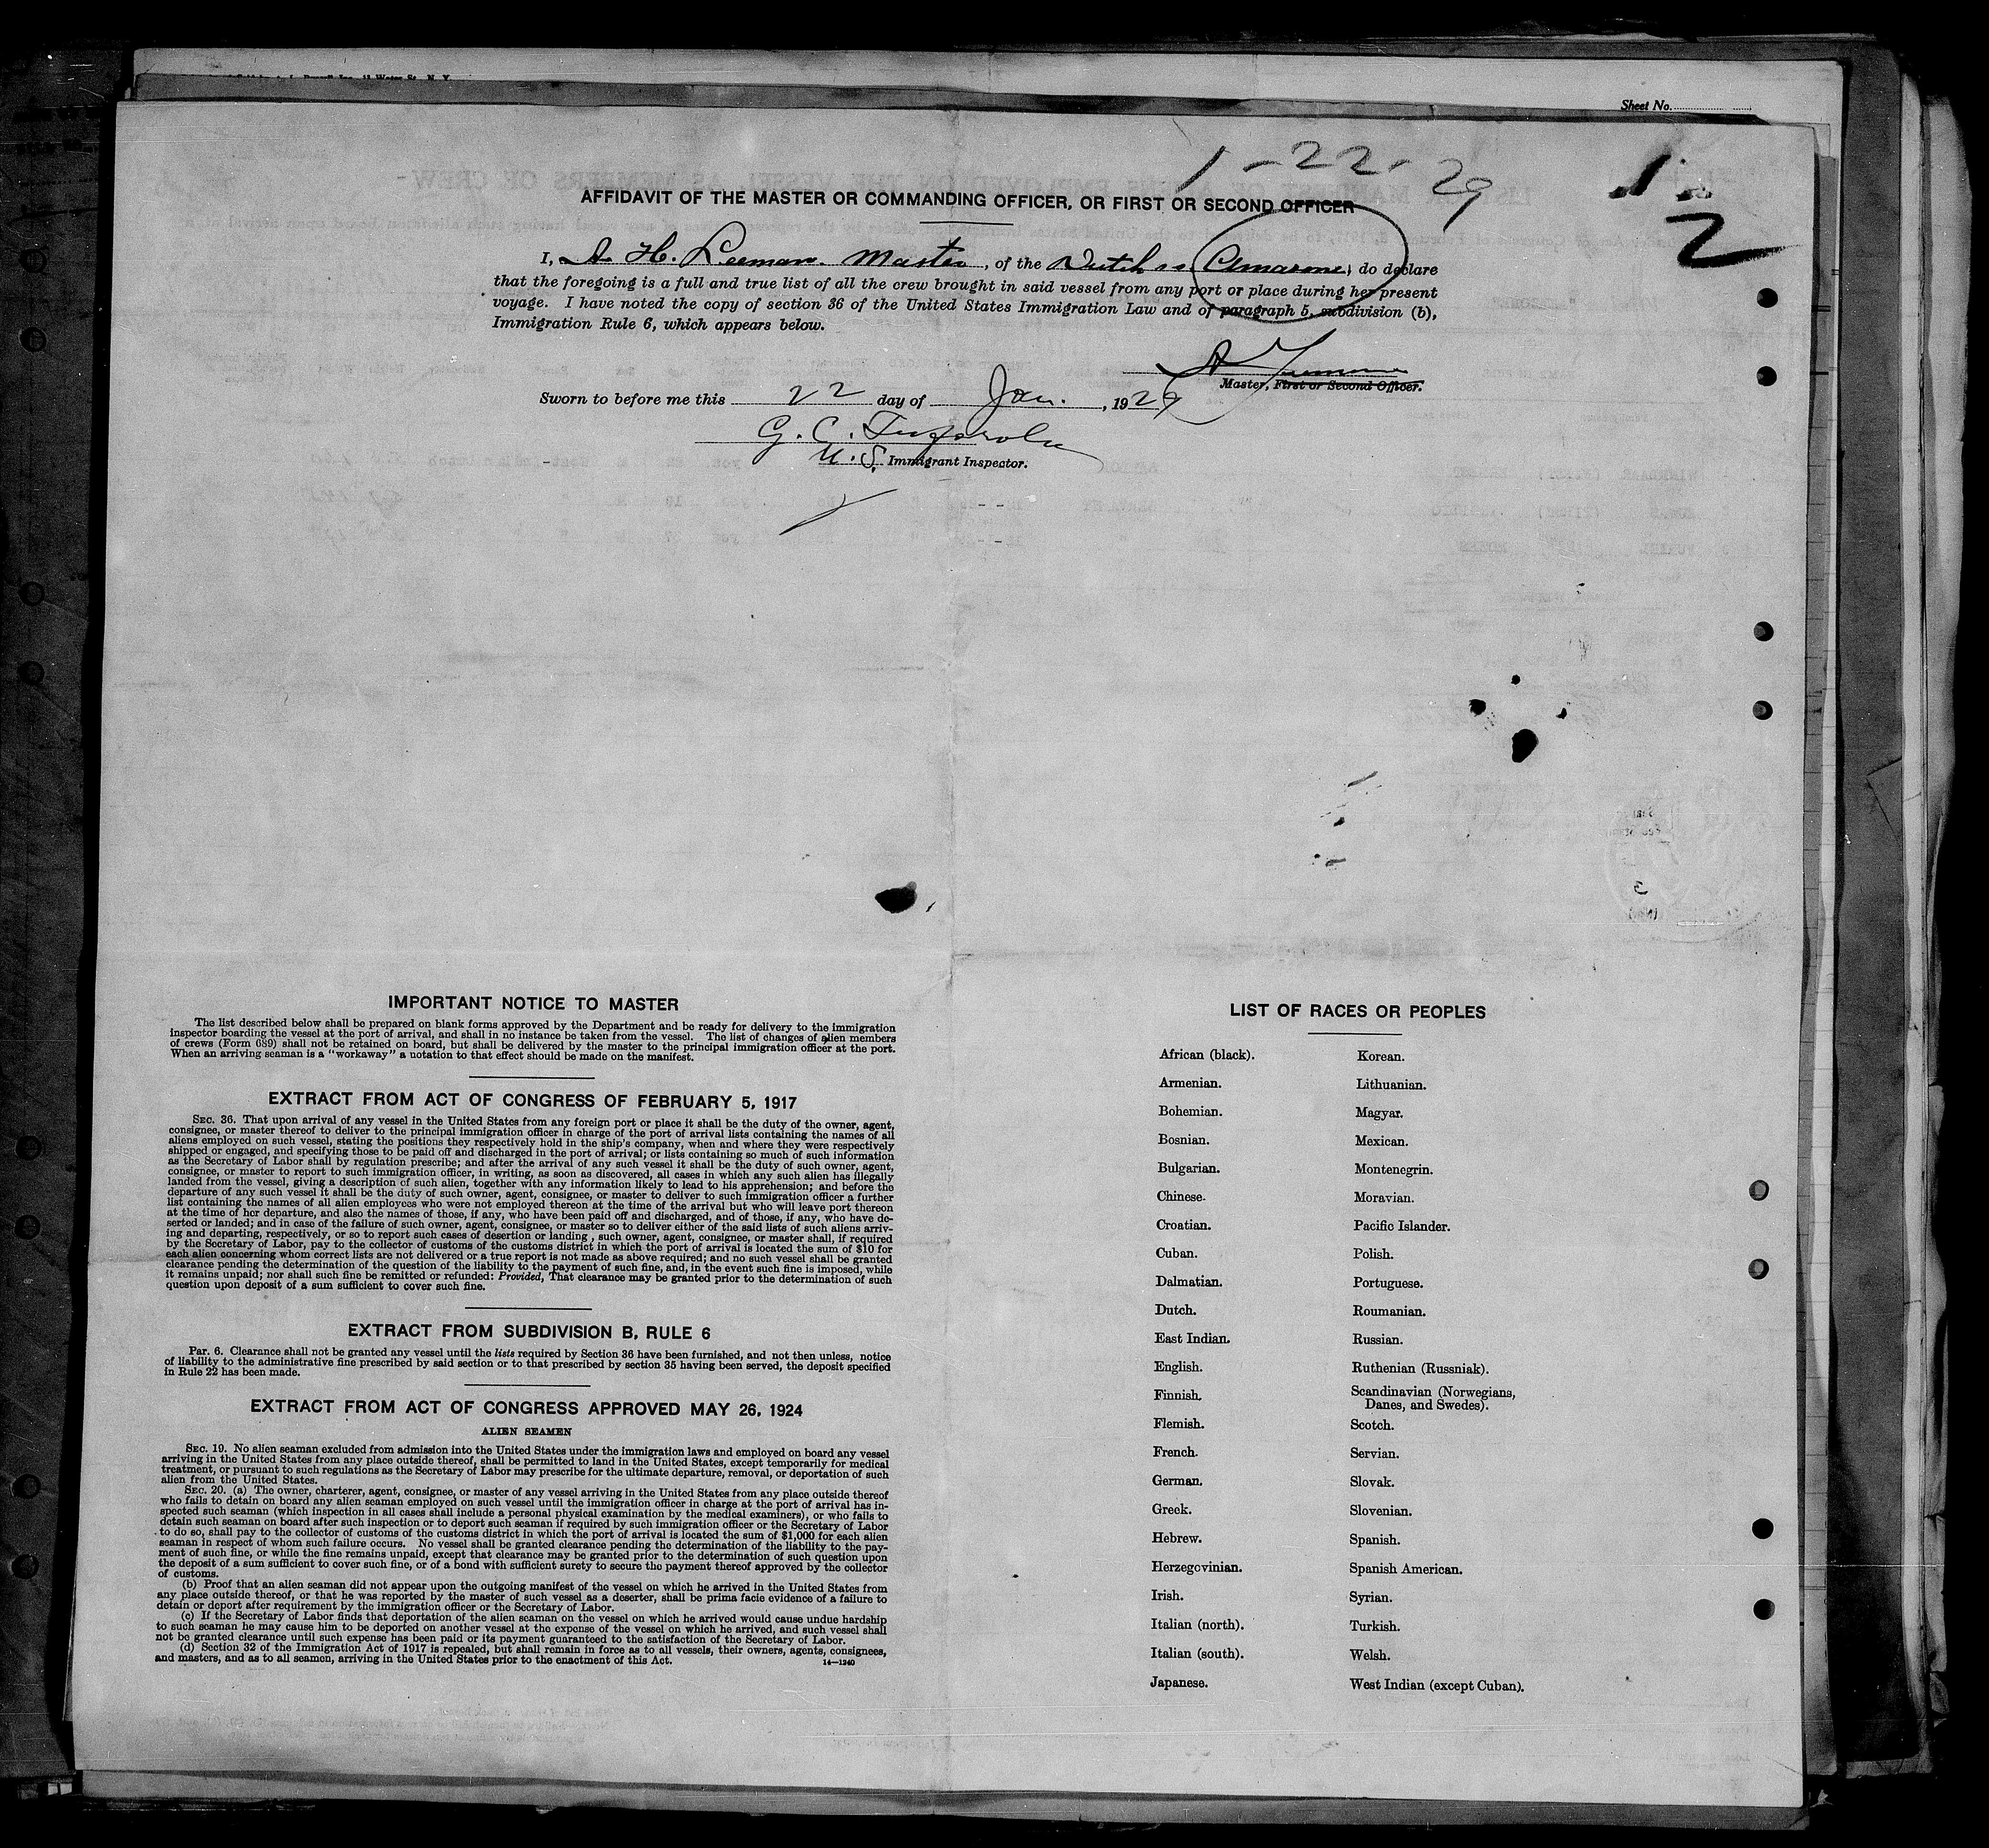 Sheet No.
1-22-29
2
AFFIDAVIT OF THE MASTER OR COMMANDING OFFICER, OR FIRST OR SECOND OFFICER
I, A. H. Leeman. Master, of the Dutch ss Amazone, do declare
that the foregoing is a full and true list of all the crew brought in said vessel from any port or place during her present
voyage. I have noted the copy of section 36 of the United States Immigration Law and of paragraph 5, subdivision (b),
Immigration Rule 6, which appears below.
Master, First or Second Officer.
Sworn to before me this 22 day of Jan., 1929
G. C.
U. S. Immigrant Inspector.
IMPORTANT NOTICE TO MASTER
The list described below shall be prepared on blank forms approved by the Department and be ready for delivery to the immigration
inspector boarding the vessel at the port of arrival, and shall in no instance be taken from the vessel. The list of changes of alien members
of crews (Form 689) shall not be retained on board, but shall be delivered by the master to the principal immigration officer at the port.
When an arriving seaman is a "workaway" a uotation to that effect should be made on the manifest.
EXTRACT FROM ACT OF CONGRESS OF FEBRUARY 5, 1917
SEC. 36. That upon arrival of any vessel in the United States from any foreign port or place it shall be the duty of the owner, agent,
consignee, or master thereof to deliver to the principal immigration officer in charge of the port of arrival lists containing the names of all
aliens employed on such vessel, stating the positions they respectively hold in the ship's company, when and where they were respectively
shipped or engaged, and specifying those to be paid off and discharged in the port of arrival; or lists containing so much of such information
as the Secretary of Labor shall by regulation prescribe; and after the arrival of any such vessel it shall be the duty of such owner, agent,
consignee, or master to report to such immigration officer, in writing, as soon as discovered, all cases in which any such alien has illegally
landed from the vessel, giving a description of such alien, together with any information likely to lead to his apprehension; and before the
departure of any such vessel it shall be the duty of such owner, agent, consignee, or master to deliver to such immigration officer a further
list containing the names of all alien employees who were not employed thereon at the time of the arrival but who will leave port thereon
at the time of her departure, and also the names of those, if any, who have been paid off and discharged, and of those, if any, who have de-
serted or landed; and in case of the failure of such owner, agent, consignee, or master so to deliver either of the said lists of such aliens arriv-
ing and departing, respectively, or so to report such cases of desertion or landing , such owner, agent, consignee, or master shall, if required
by the Secretary of Labor, pay to the collector of customs of the customs district in which the port of arrival is located the sum of $10 for
each alien concerning whom correct lists are not delivered or a true report is not made as above required; and no such vessel shall be granted
clearance pending the determination of the question of the liability to the payment of such fine, and, in the event such fine is imposed, while
it remains unpaid; nor shall such fine be remitted or refunded: Provided, That clearance may be granted prior to the determination of such
question upon deposit of a sum sufficient to cover such fine.
EXTRACT FROM SUBDIVISION B, RULE 6
Par. 6. Clearance shall not be granted any vessel until the lists required by Section 36 have been furnished, and not then unless, notice
of liability to the administrative fine prescribed by said section or to that prescribed by section 35 having been served, the deposit specified
in Rule 22 has been made.
EXTRACT FROM ACT OF CONGRESS APPROVED MAY 26, 1924
ALIEN SEAMEN
SEC. 19. No alien seaman excluded from admission into the United States under the immigration laws and employed on board any vessel
arriving in the United States from any place outside thereof, shall be permitted to land in the United States, except temporarily for medical
treatment, or pursuant to such regulations as the Secretary of Labor may prescribe for the ultimate departure, removal, or deportation of such
alien from the United States.
SEC. 20. (a) The owner, charterer, agent, consignee, or master of any vessel arriving in the United States from any place outside thereof
who fails to detain on board any alien seaman employed on such vessel until the immigration officer in charge at the port of arrival has in-
spected such seaman (which inspection in all cases shall include a personal physical examination by the medical examiners), or who fails to
detain such seaman on board after such inspection or to deport such seaman if required by such immigration officer or the Secretary of Labor
to do so, shall pay to the collector of customs of the customs district in which the port of arrival is located the sum of $1,000 for each alien
seaman in respect of whom such failure occurs. No vessel shall be granted clearance pending the determination of the liability to the pay-
ment of such fine, or while the fine remains unpaid, except that clearance may be granted prior to the determination of such question upon
the deposit of a sum sufficient to cover such fine, or of a bond with sufficient surety to secure the payment thereof approved by the collector
of customs.
(b) Proof that an alien seaman did not appear upon the outgoing manifest of the vessel on which he arrived in the United States from
any place outside thereof, or that he was reported by the master of such vessel as a deserter, shall be prima facie evidence of a failure to
detain or deport after requirement by the immigration officer or the Secretary of Labor.
(c) If the Secretary of Labor finds that deportation of the alien seaman on the vessel on which he arrived would cause undue hardship
to such seaman he may cause him to be deported on another vessel at the expense of the vessel on which he arrived, and such vessel shall
not be granted clearance until such expense has been paid or its payment guaranteed to the satisfaction of the Secretary of Labor.
(d) Section 32 of the Immigration Act of 1917 is repealed, but shall remain in force as to all vessels, their owners, agents, consignees,
and masters, and as to all seamen, arriving in the United States prior to the enactment of this Act.
14—1240
LIST OF RACES OR PEOPLES
African (black).
Armenian.
Bohemian.
Bosnian.
Bulgarian.
Chinese.
Croatian.
Cuban.
Dalmatian.
Dutch.
East Indian.
English.
Finnish.
Flemish.
French.
German.
Greek.
Hebrew.
Herzegovinian.
Irish.
Italian (north).
Italian (south).
Japanese.
Korean.
Lithuanian.
Magyar.
Mexican.
Montenegrin.
Moravian.
Pacific Islander.
Polish.
Portuguese.
Roumanian.
Russian.
Ruthenian (Russniak).
Scandinavian (Norwegians,
Danes, and Swedes).
Scotch.
Servian.
Slovak.
Slovenian.
Spanish.
Spanish American.
Syrian.
Turkish.
Welsh.
West Indian (except Cuban).